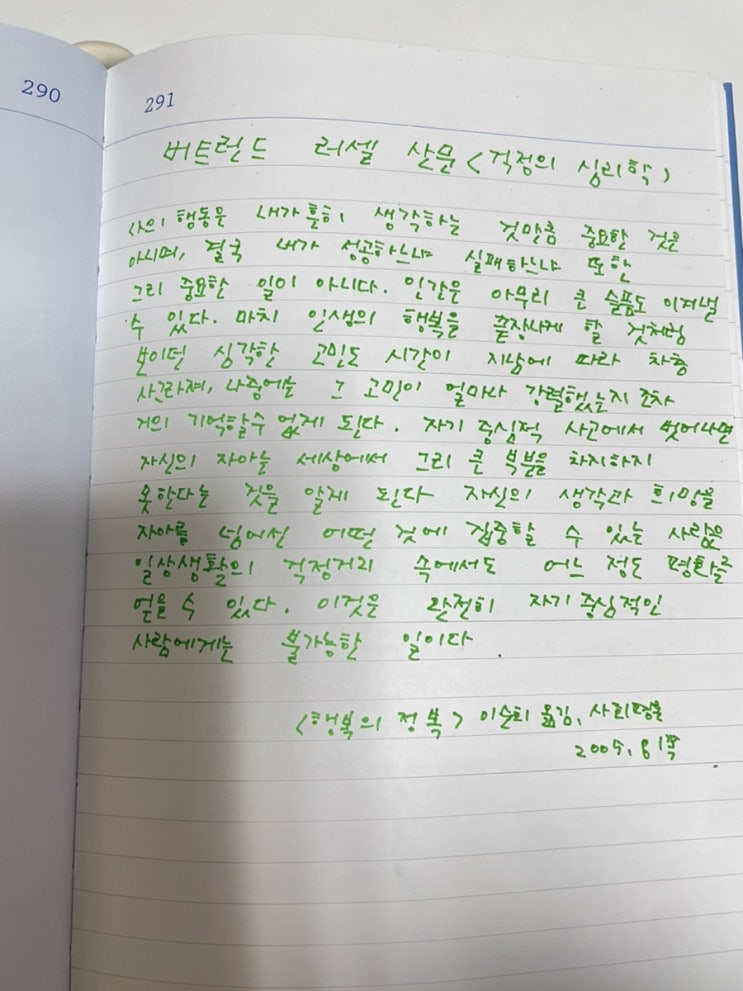 290
291
버트런드 러셀 산문 <걱정의 심리학>
나의 행동은 내가 흔히 생각하는 것만큼 중요한 것은
아니며, 결국 내가 성공하느냐 실패하느냐 또한
그리 중요한 일이 아니다. 인간은 아무리 큰 슬픔도 이겨낼
수 있다. 마치 인생의 행복을 끝장나게 할 것처럼
보이던 심각한 고민도 시간이 지남에 따라 차츰
사그라져, 나중에는 그 고민이 얼마나 강렬했는지 조차
거의 기억할수 없게 된다. 자기 중심적 사고에서 벗어나면
자신의 자아는 세상에서 그리 큰 부분을 차지하지
못한다는 것을 알게 된다 자신의 생각과 희망을
자아를 넘어선 어떤 것에 집중할 수 있는 사람은
일상생활의 걱정거리 속에서도 어느 정도 평화를
얻을 수 있다. 이것은 완전히 자기 중심적인
사람에게는 불가능한 일이다
<행복의 정복> 이순희 옮김, 사회평론
2005. 81쪽